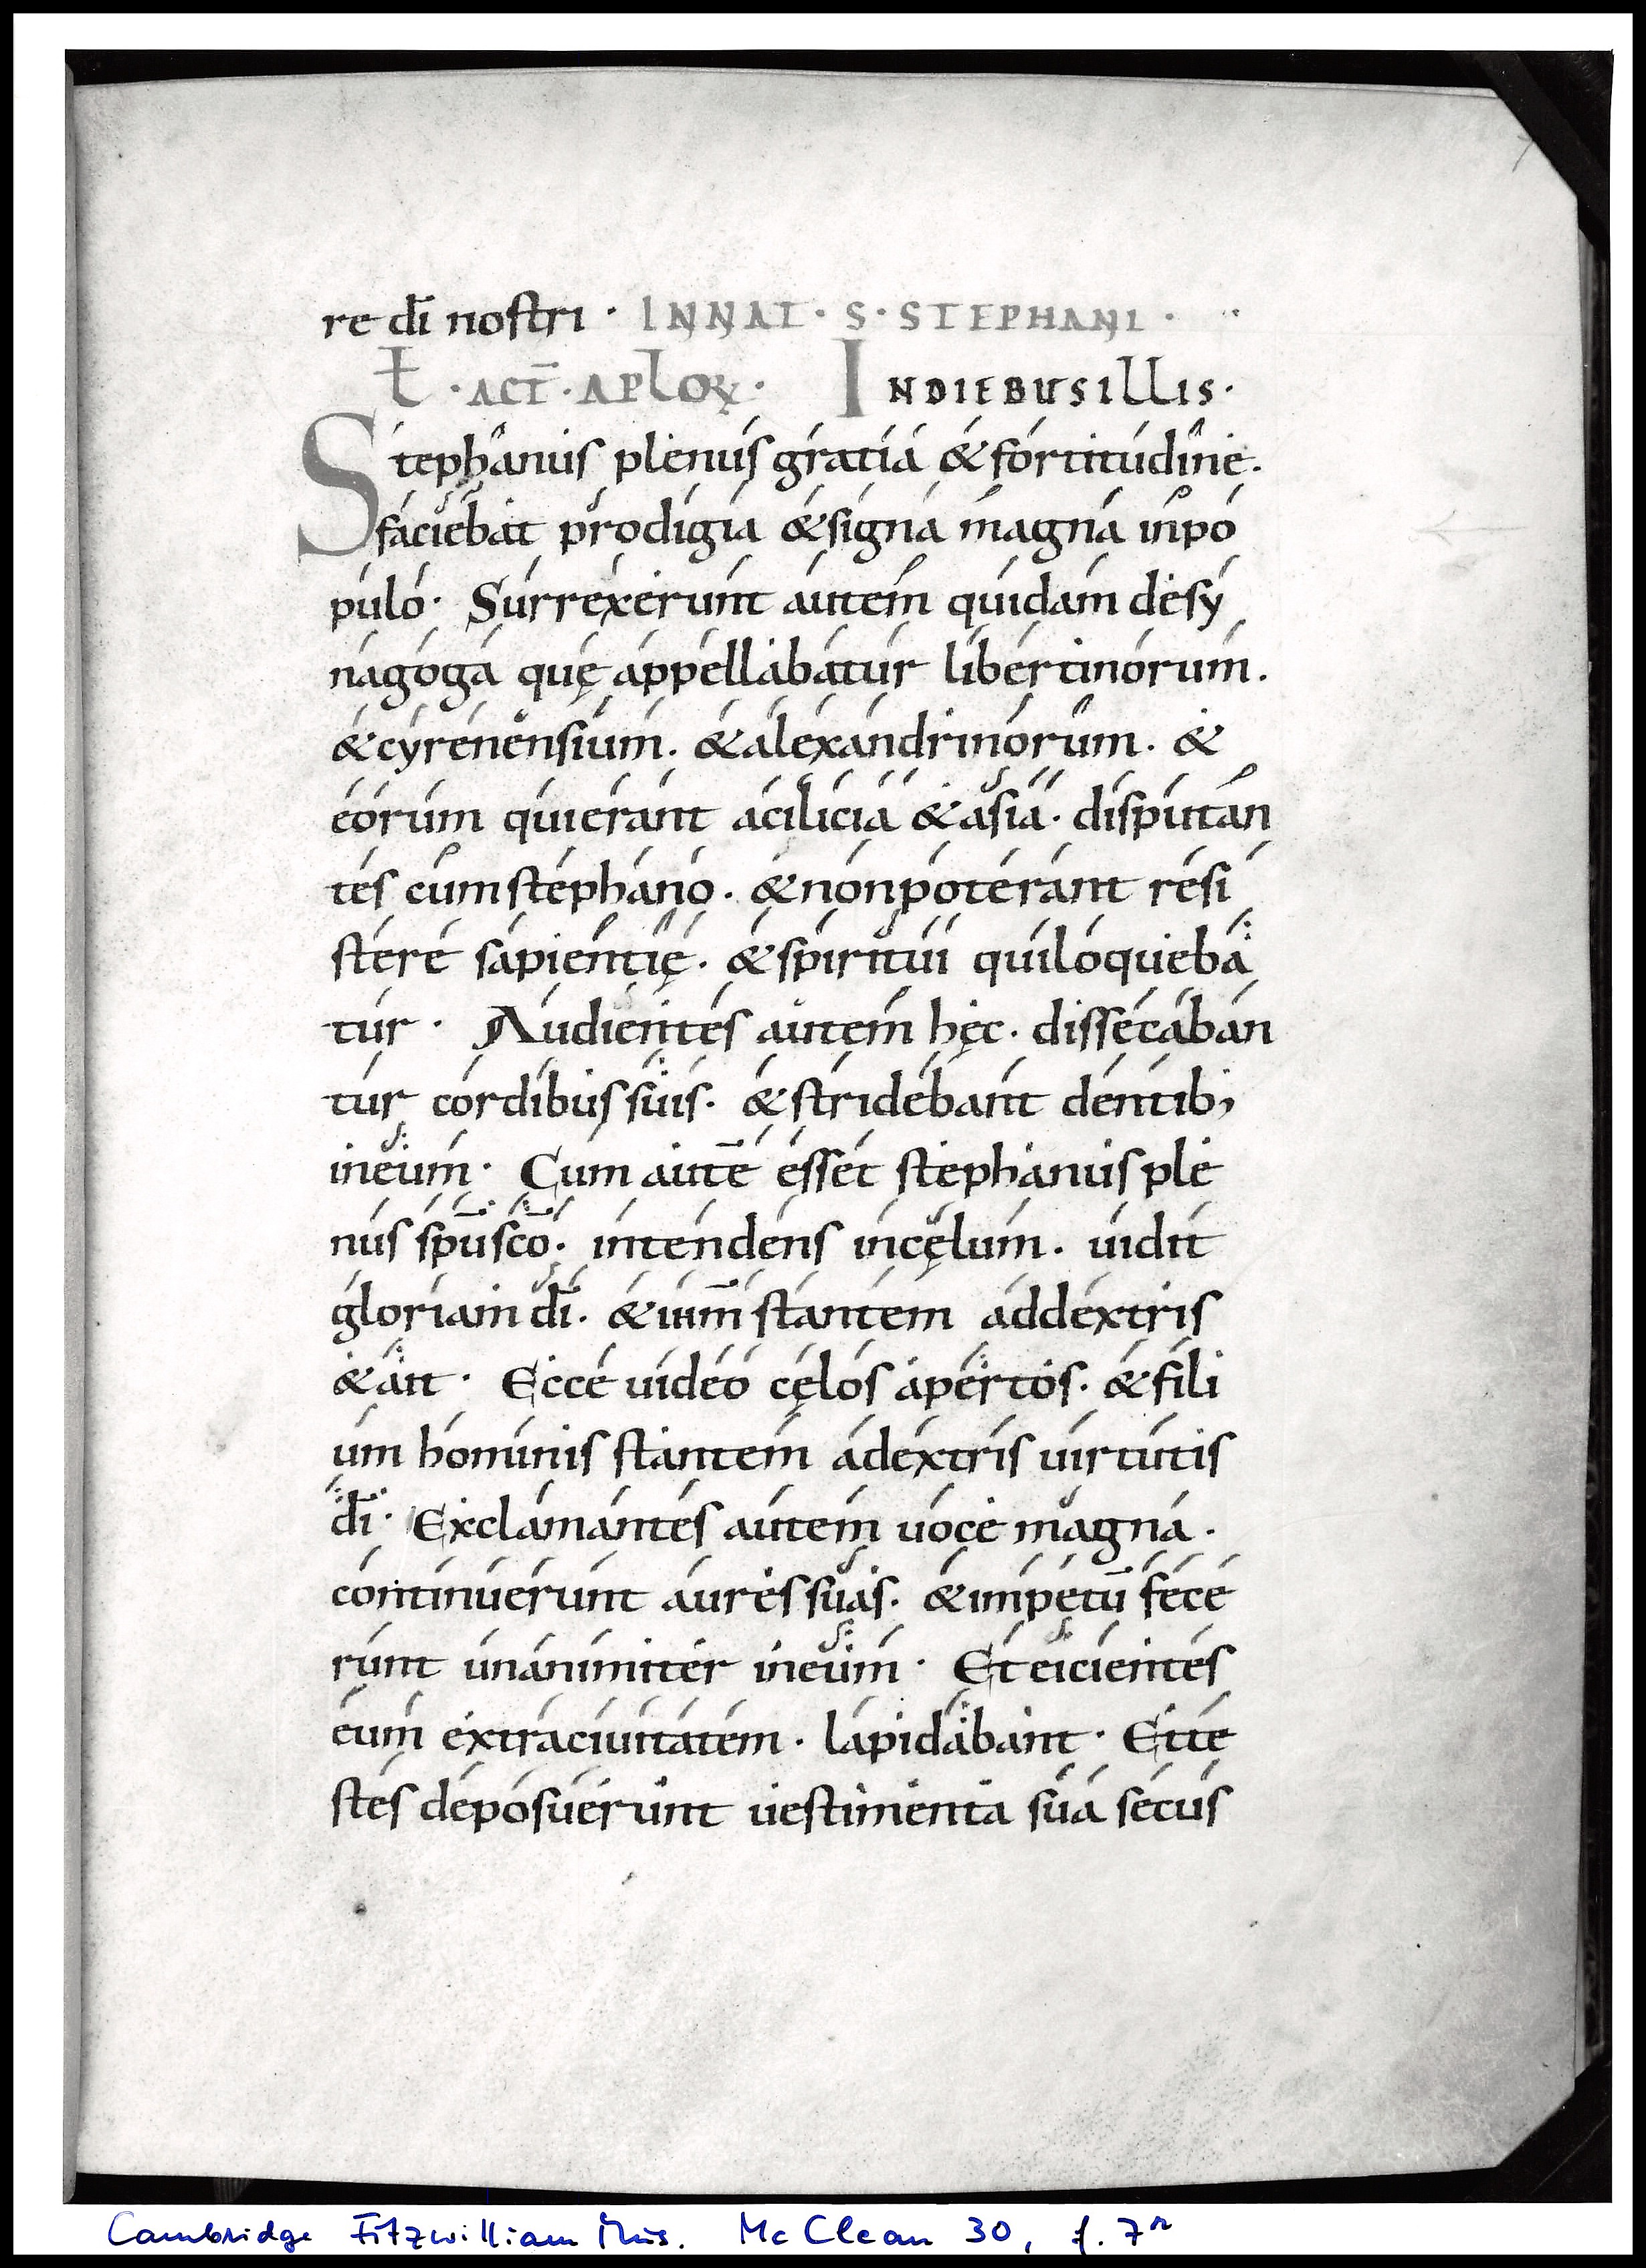 re dī nostri · IN NAT · S · STEPHANI ·
ł · ACT̄ · APLOꝜ · IN DIEBUS ILLIS ·
Stephanus plenus gratia & fortitudine.
faciebat prodigia & signa magna in po
pulo · Surrexerunt autem quidam de sy
nagoga quę appellabatur libertinorum.
& cyrenensium. & alexandrinorum. &
eorum qui erant a cilicia & asia. disputan
tes cum stephano. & non poterant resi
stere sapientię. & spiritui qui loqueba
tur · Audientes autem hęc. dissecaban
tur cordibus suis. & stridebant dentib;
in eum · Cum autē esset stephanus ple
nus spū scō. intendens in cęlum. uidit
gloriam dī. & ihm̄ stantem ad dextris
& ait · Ecce uideo cęlos apertos. & fili
um hominis stantem a dextris uirtutis
dī · Exclamantes autem uoce magna.
continuerunt aures suas. & impetū fece
runt unanimiter in eum · Et eicientes
eum extra ciuitatem. lapidabant · Et te
stes deposuerunt uestimenta sua secus
Cambridge Fitzwilliam Mus. Mc Clean 30, f. 7r